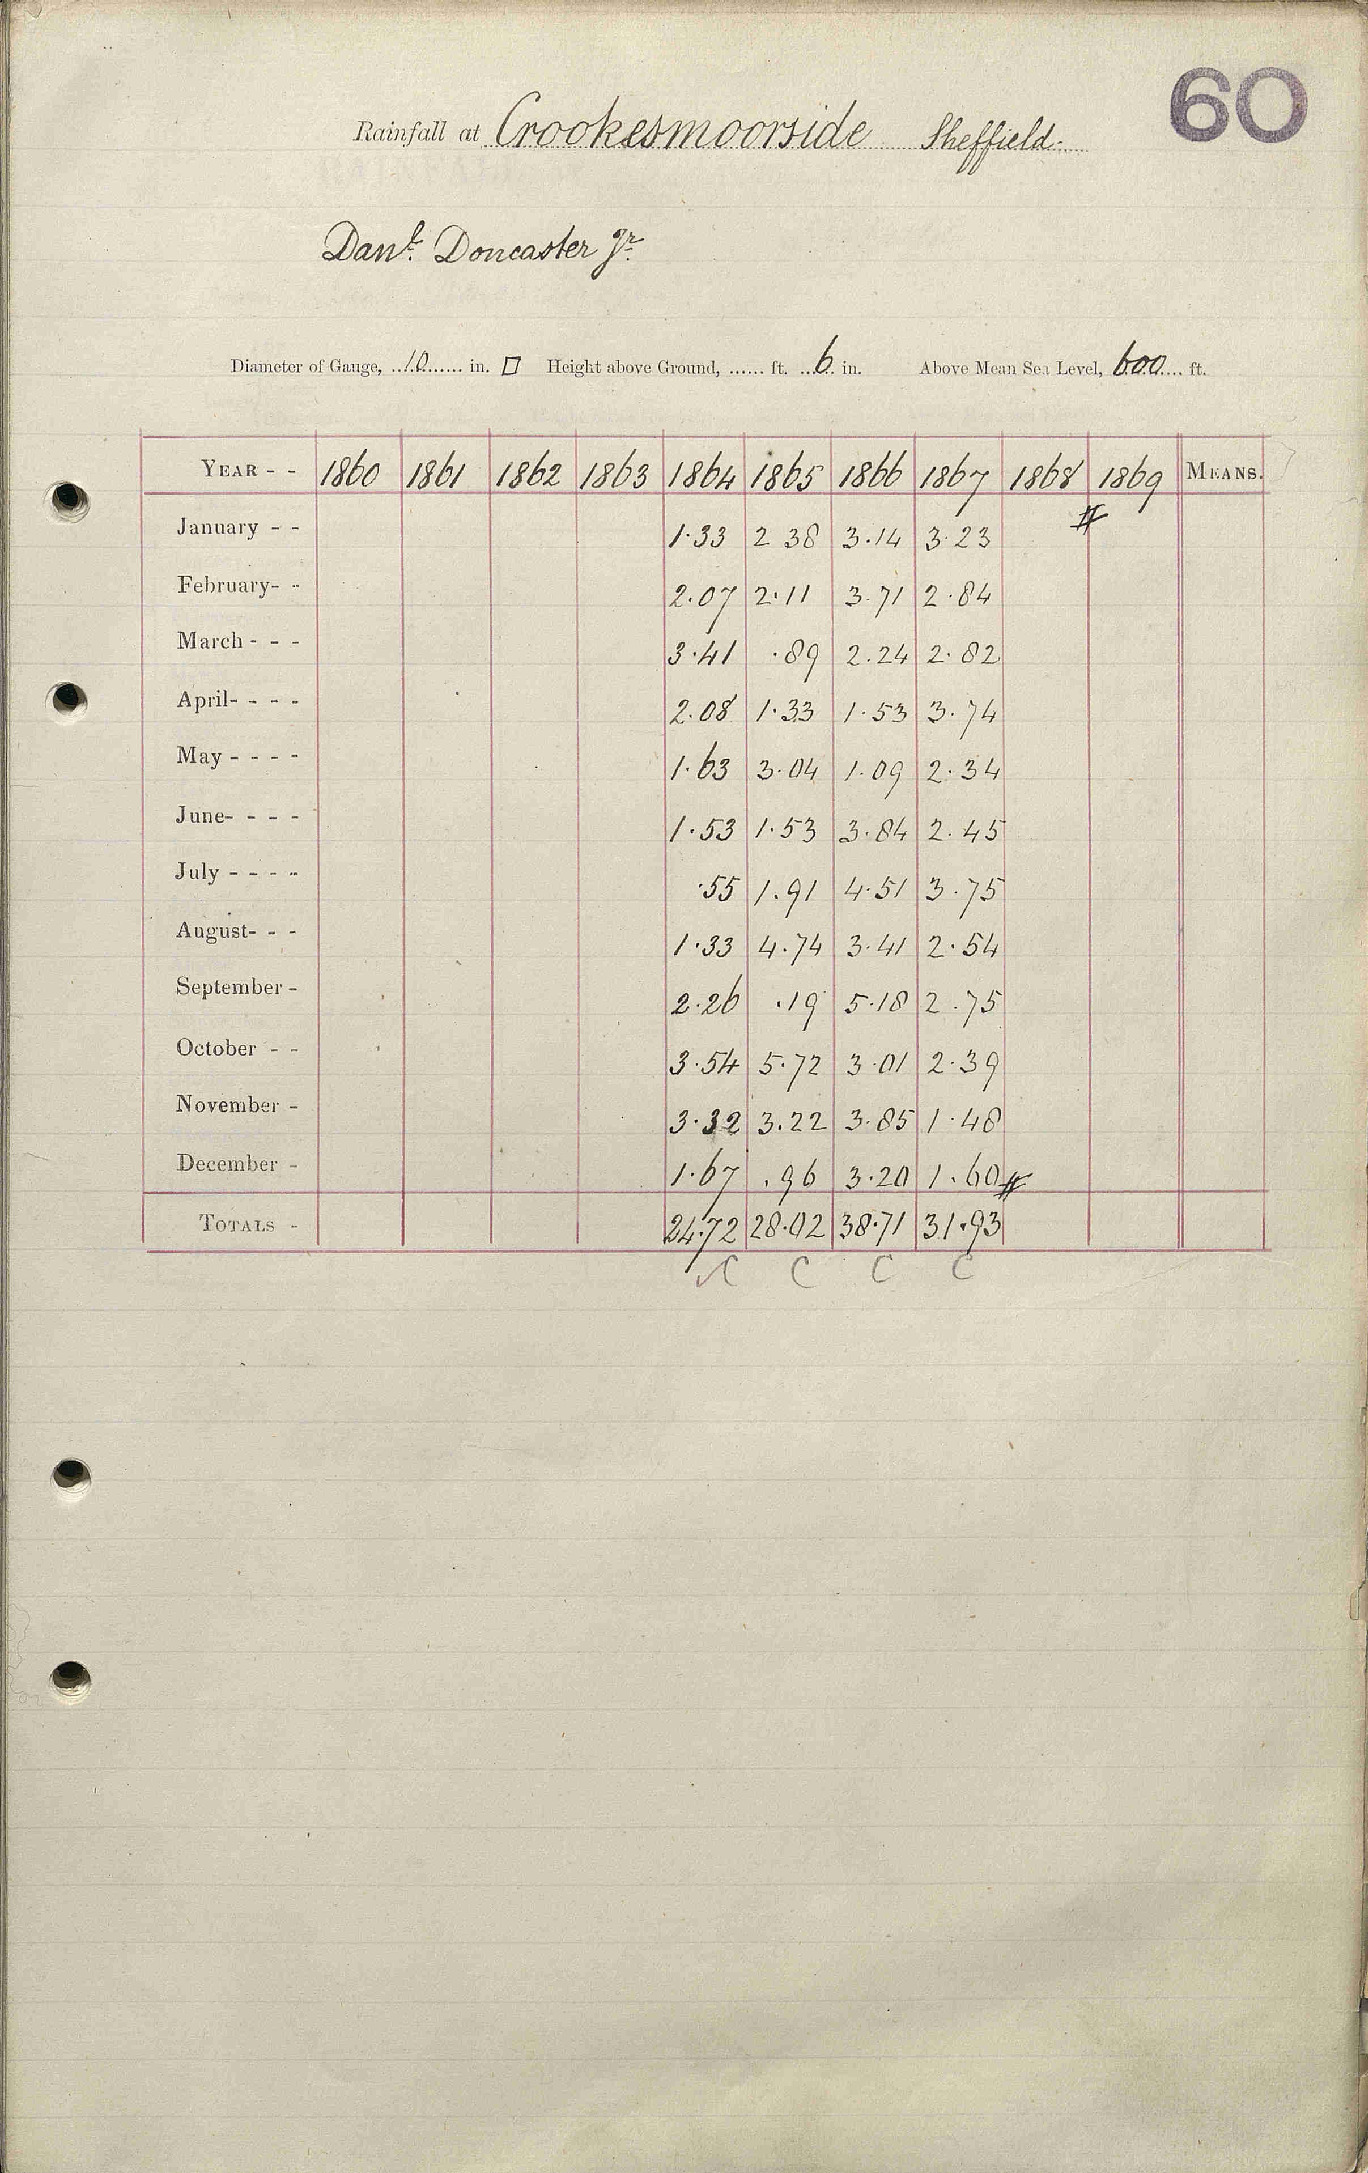 60
Rainfall at Crookesmoorside Sheffield.
Danl. Doncaster Jr.
Diameter of Gauge, 10 in. □ Height above Ground, ...... ft. 6 in. Above Mean Sea Level, 600 ft.
YEAR - - 1860 1861 1862 1863 1864 1865 1866 1867 1868 1869 MEANS.
January - - 1.33 2 38 3.14 3.23 #
February- - 2.07 2.11 3.71 2.84
March - - - 3.41 .89 2.24 2.82
April- - - - 2.08 1.33 1.53 3.74
May - - - - 1.63 3.04 1.09 2.34
June- - - - 1.53 1.53 3.84 2.45
July - - - - .55 1.91 4.51 3.75
August- - - 1.33 4.74 3.41 2.54
September - 2.26 .19 5.18 2.75
October - - 3.54 5.72 3.01 2.39
November - 3.32 3.22 3.85 1.48
December - 1.67 .96 3.20 1.60 #
TOTALS - 24.72 28.02 38.71 31.93
✓C C C C